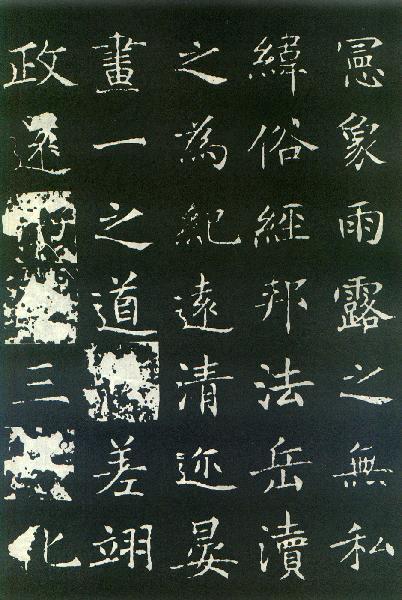 憲象雨露之無私
緯俗經邦法岳瀆
之為紀遠清迩晏
畫一之道差翊
政遂三化